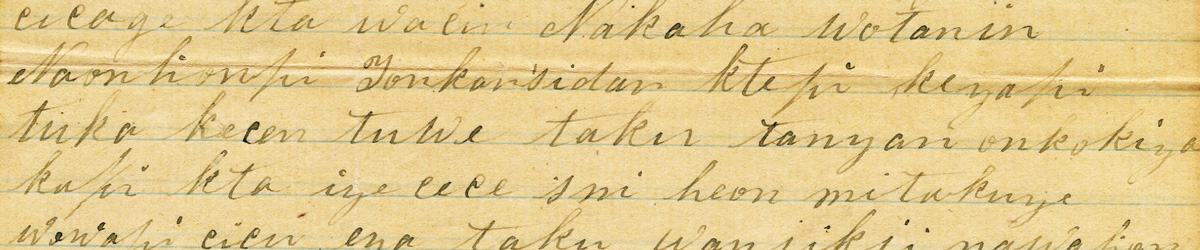 cicage kta wacin Nakaha wotanin
Naonḣonpi Tonkanśidan ktepi keyapi
tuka kecen tuwe taku tanyan onkokiya
kapi kta iyececе śni heon mitakuye
wowapi cicu eya taku wanjikji nawaḣon